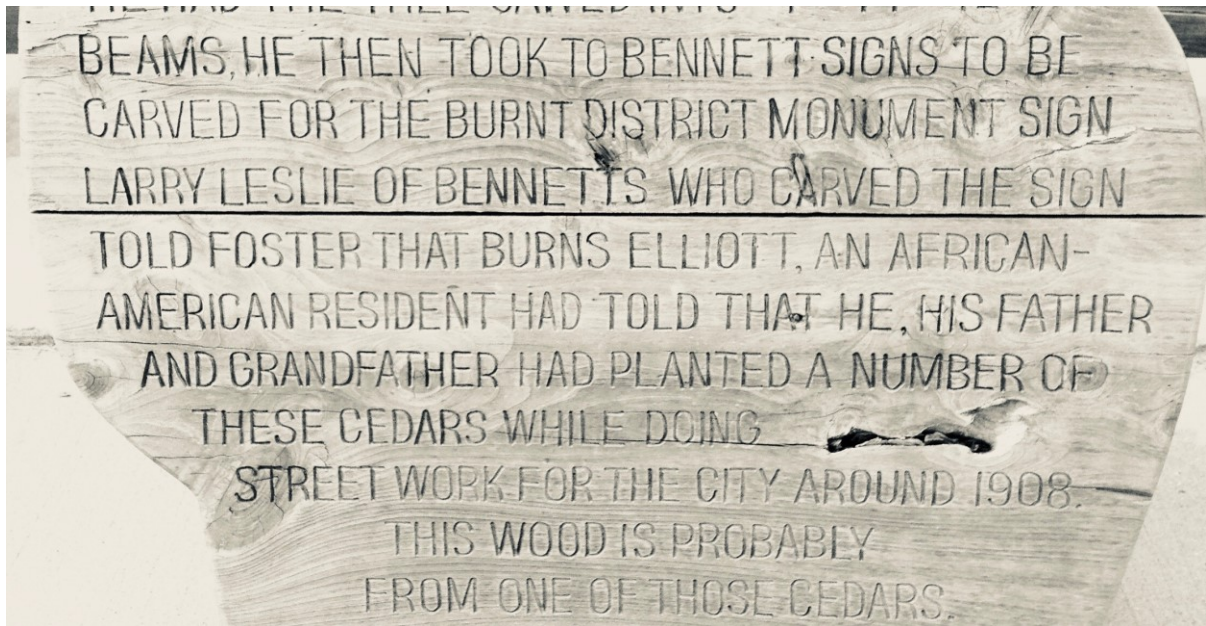 HE HAD THE TREE SAWED INTO
BEAMS, HE THEN TOOK TO BENNETT SIGNS TO BE
CARVED FOR THE BURNT DISTRICT MONUMENT SIGN
LARRY LESLIE OF BENNETTS WHO CARVED THE SIGN
TOLD FOSTER THAT BURNS ELLIOTT, AN AFRICAN-
AMERICAN RESIDENT HAD TOLD THAT HE, HIS FATHER
AND GRANDFATHER HAD PLANTED A NUMBER OF
THESE CEDARS WHILE DOING
STREET WORK FOR THE CITY AROUND 1908.
THIS WOOD IS PROBABLY
FROM ONE OF THOSE CEDARS.